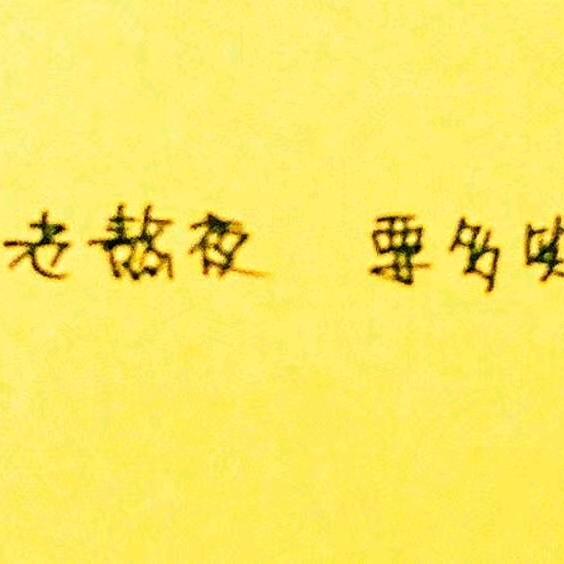 老熬夜 要多